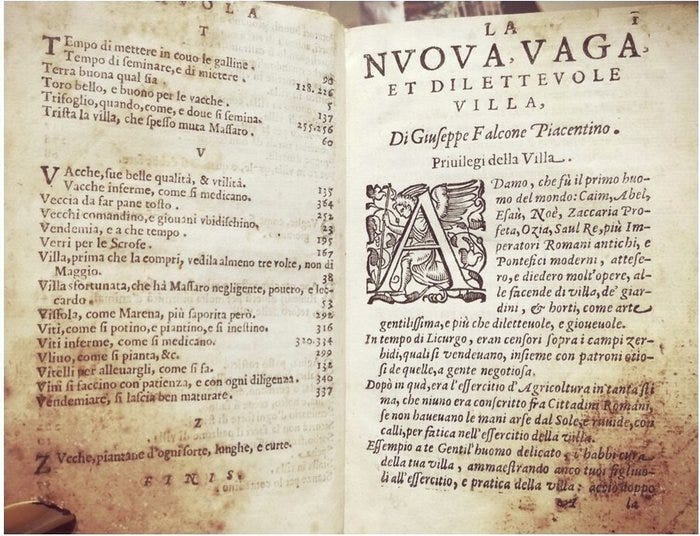 VOLA
T
TEmpo di mettere in couo le galline. 90
Tempo di seminare, e di mietere. 128.226
Terra buona qual sia. 5
Toro bello, e buono per le vacche. 137
Trifoglio, quando, come, e doue si semina. 255.256
Trista la villa, che spesso muta Massaro. 60
V
VAcche, sue belle qualità, & vtilità. 135
Vacche inferme, come si medicano.
Veccia da far pane tosto. 364
Vecchi comandino, e giouani vbidischino. 252
Vendemia, e a che tempo. 23
Verri per le Scrofe. 195
Villa, prima che la compri, vedila almeno tre volte, non di 167
Maggio. 38
Villa sfortunata, che hà Massaro negligente, pouero, e lec-
cardo. 53
Vissola, come Marena, più saporita però. 292
Viti, come si potino, e piantino, e si inestino. 316
Viti inferme, come si medicano. 320.334
Vliuo, come si pianta, &c. 299
Vitelli per alleuargli, come si fa. 132
Vini si faccino con patienza, e con ogni diligenza. 340
Vendemiare, si lascia ben maturare. 337
Z
ZVcche, piantane d'ogni sorte, lunghe, e curte.
FINIS.
1
LA
NVOVA, VAGA,
ET DILETTEVOLE
VILLA,
Di Giuseppe Falcone Piacentino.
Priuilegi della Villa.
ADamo, che fù il primo huo-
mo del mondo: Caim, Abel,
Esaù, Noè, Zaccaria Pro-
feta, Ozia, Saul Re, più Im-
peratori Romani antichi, e
Pontefici moderni, attese-
ro, e diedero molt'opere, al-
le facende di villa, de' giar-
dini, & horti, come arte
gentilissima, e più che diletteuole, e gioueuole.
In tempo di Licurgo, eran censori sopra i campi zer-
bidi, quali si vendeuano, insieme con patroni otio-
si de quelle, a gente negotiosa.
Dopò in quà, era l'essercitio d'Agricoltura in tanta sti
ma, che niuno era conscritto fra Cittadini Romani,
se non haueuano le mani arse dal Sole, e ruuide, con
calli, per fatica nell'essercitio della villa.
Essempio a te Gentil'huomo delicato, c'habbi cura
della tua villa, ammaestrando anco tuoi figliuo-
li all'essercitio, e pratica della villa: acciò doppo
la